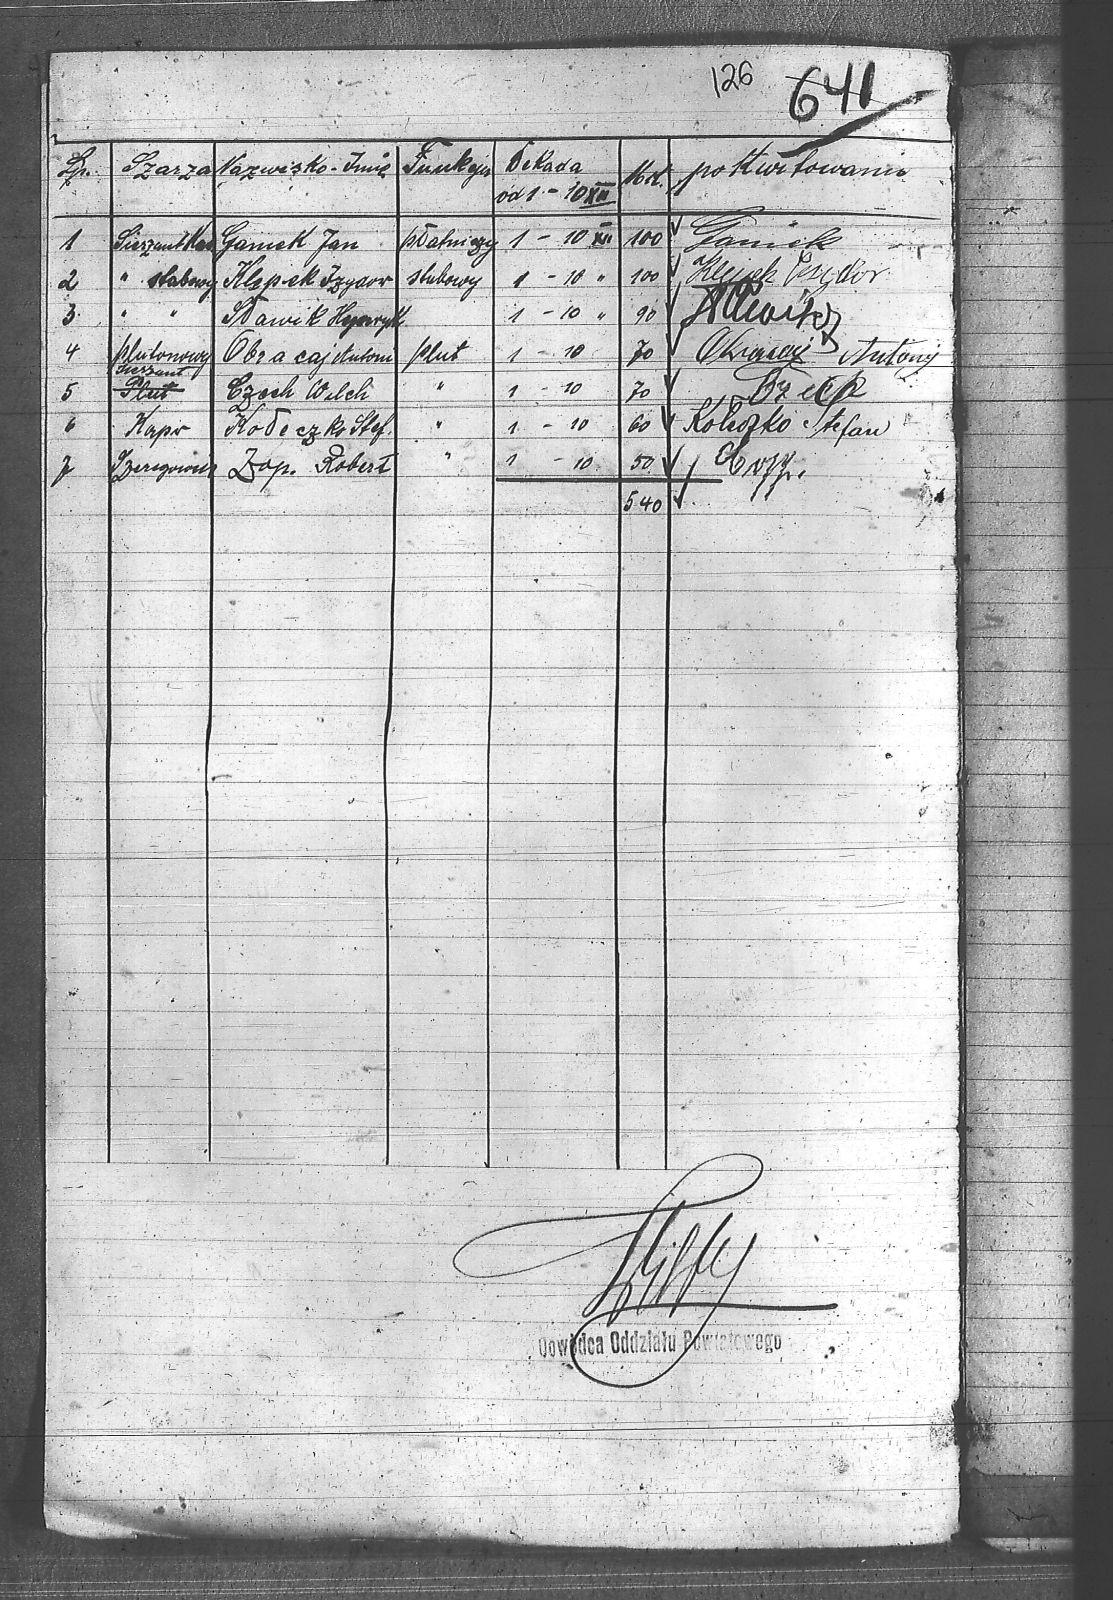 126 641
Lp. Szarza Nazwisko-Imię Funkcja Dekada od 1-10 XII Mk. pokwitowanie
1 Sierżant Gamek Jan płatniczy 1 - 10 XII. 100 Gamek
2 " stabowy Klepek Izydor stabowy 1 - 10 " 100
3 " " Sławik Henryk 1 - 10 " 90
4 plutonowy Obracaj Antoni plut 1 - 10 70 Antonij
5 Sierzant Plut Czech Wilch " 1 - 10 70
6 Kapr Kołeczko Stef. " 1 - 10 60 Stefan
7 Szeregowiec Zop. Robert " 1 - 10 50
540
Dowódca Oddziału Powiatowego